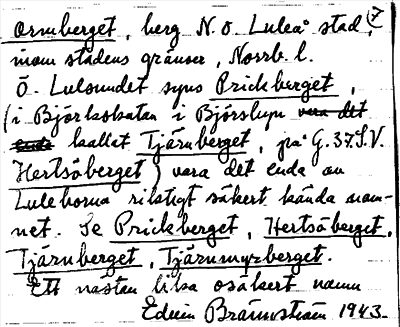 Ormberget, berg N.O. Luleå stad, 7
inom stadens gränser, Norrb. l.
Ö. Lulsundet syns Prickberget,
(i Björkskatan i Björslupu vara det
enda kallat Tjärnberget, på G. 37. S.V.
Hertsöberget) vara det enda av
Luleborna riktigt säkert kända nam-
net. Se Prickberget, Hertsöberget,
Tjärnberget, Tjärnmyrberget.
Ett nästan lika osäkert namn
Edvin Brännström 1943.